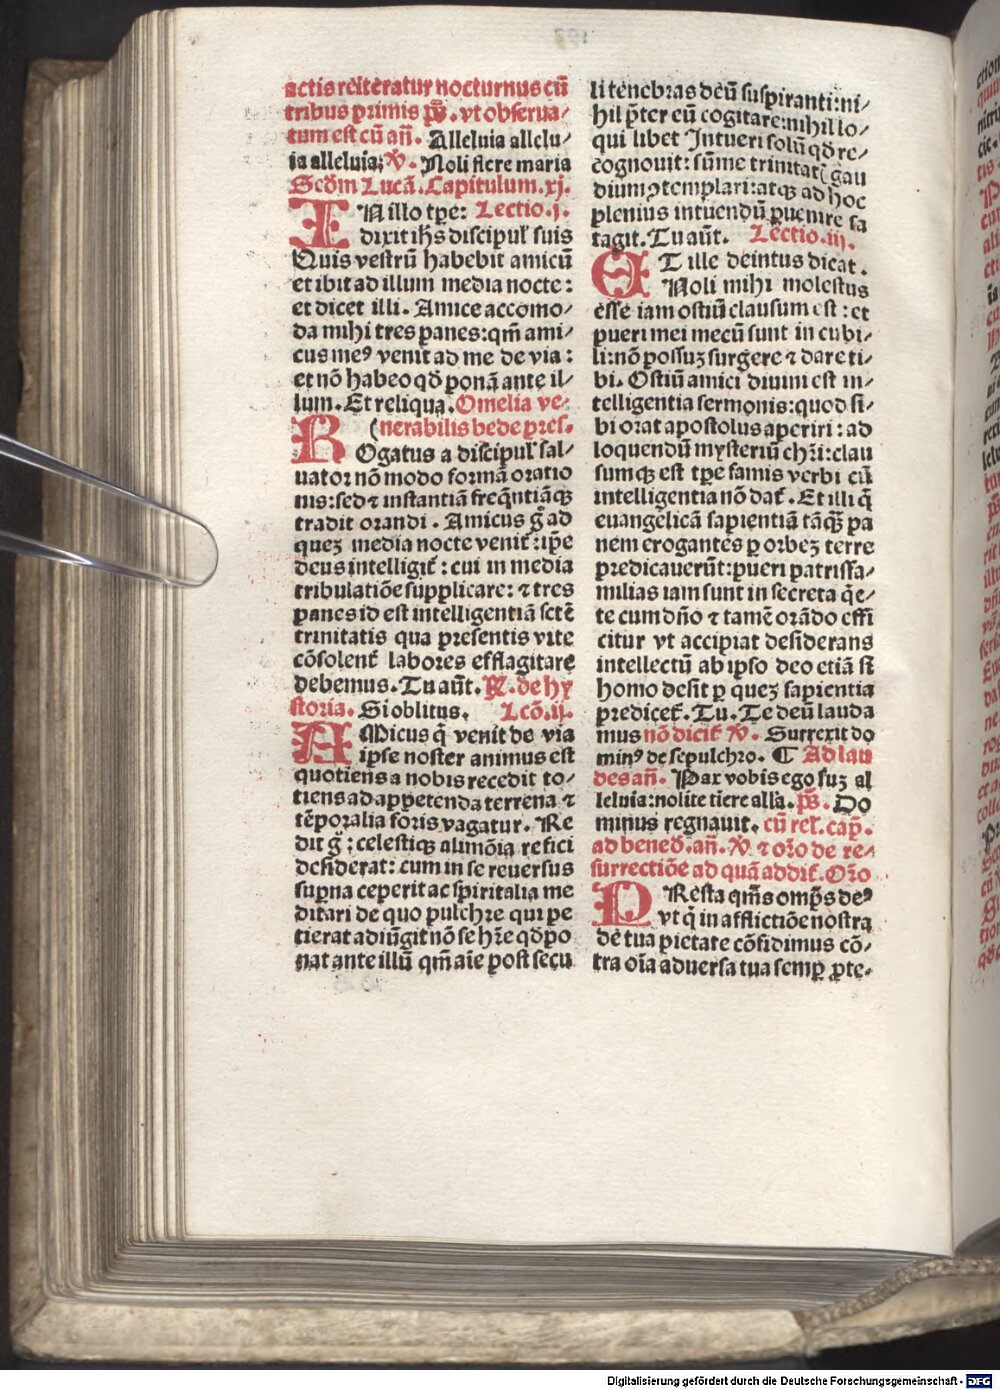 actis reiteratur nocturnus cū
tribus primis ps̄. vt obserua⸗
tum est cū añ. Alleluia allelu⸗
ia alleluia; ℣. Noli flere maria
Scd̄m Lucā. Capitulum. xj.
IN illo tp̄e: Lectio .j.
dixit ih̄s discipul' suis
Quis vestrū habebit amicū
et ibit ad illum media nocte:
et dicet illi. Amice accomo⸗
da mihi tres panes: qm̄ ami⸗
cus meꝰ venit ad me de via:
et nō habeo qd̄ ponā ante il⸗
lum. Et reliqua. Omelia ve⸗
(nerabilis bede p̄res.
ROgatus a discipul' sal⸗
uator nō modo formā oratio
nis: sed ⁊ instantiā freq̄ntiāqꝫ
tradit orandi. Amicus g̊ ad
queꝫ media nocte venit̄: ip̄e
deus intelligit̄: cui in media
tribulatiōe supplicare: ⁊ tres
panes id est intelligentiā sctē
trinitatis qua presentis vite
cōsolent̄ labores efflagitare
debemus. Tu aūt. ℟. de hy
storia. Si oblitus. Lcō. ij.
AMicus q̄ venit de via
ipse noster animus est
quotiens a nobis recedit to⸗
tiens ad appetenda terrena ⁊
tēporalia foris vagatur. Re
dit g̊: celestiqꝫ alimōia refici
desiderat: cum in se reuersus
supna ceperit ac spiritalia me
ditari de quo pulchre qui pe
tierat adiūgit nō se hr̄e qd̄ po
nat ante illū qm̄ aīe post secu
li tenebras deū suspiranti: ni⸗
hil p̄ter eū cogitare: nihil lo⸗
qui libet Intueri solū qd̄ re⸗
cognouit: sūme trinitat̄ gau
dium ꝯtemplari: atqꝫ ad hoc
plenius intuendū ꝑuenire sa
tagit. Tu aūt. Lectio .iij.
ET ille deintus dicat.
Noli mihi molestus
esse iam ostiū clausum est: et
pueri mei mecū sunt in cubi⸗
li: nō possuꝫ surgere ⁊ dare ti⸗
bi. Ostiū amici diuini est in⸗
telligentia sermonis: quod si⸗
bi orat apostolus aperiri: ad
loquendū mysteriū chr̄i: clau
sumqꝫ est tp̄e famis verbi cū
intelligentia nō dat̄. Et illi q̄
euangelicā sapientiā tāqꝫ pa
nem erogantes ꝑ orbeꝫ terre
predicauerūt: pueri patrisfa⸗
milias iam sunt in secreta q̄e⸗
te cum dn̄o ⁊ tamē orādo effi
citur vt accipiat desiderans
intellectū ab ipso deo etiā si
homo desit ꝑ queꝫ sapientia
predicet̄. Tu. Te deū lauda
mus nō dicit̄ ℣. Surrexit do
minꝰ de sepulchro. ¶ Ad lau
des añ. Pax vobis ego suꝫ al
leluia: nolite timere all'a. ps̄. Do
minus regnauit. cū rel'. cap̄.
ad bened̄. añ. ℣ ⁊ or̄o de re⸗
surrectiōe ad quā addit̄. Or̄o
PResta qm̄s omp̄s deꝰ
vt q̄ in afflictiōe nostra
de tua pietate cōfidimus cō⸗
tra oīa aduersa tua semꝑ ꝓte⸗
Digitalisierung gefördert durch die Deutsche Forschungsgemeinschaft - DFG